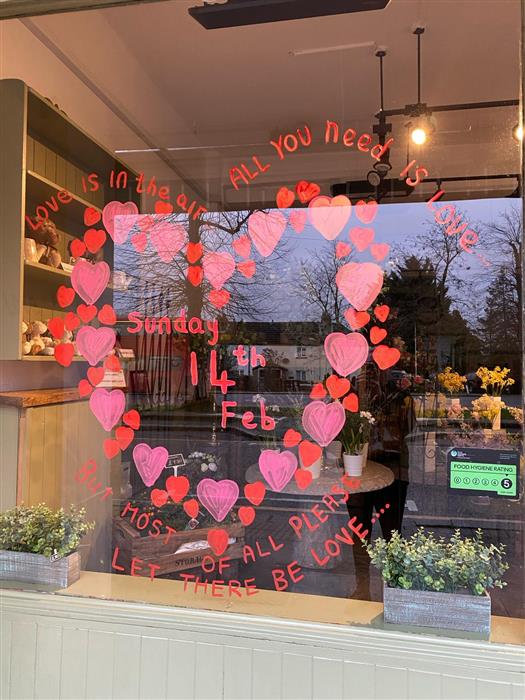 Love is in the air
ALL YOU NEED IS LOVE...
Sunday
14th
Feb
BUT MOST OF ALL PLEASE
LET THERE BE LOVE...
FOOD HYGIENE RATING
0 1 2 3 4 5